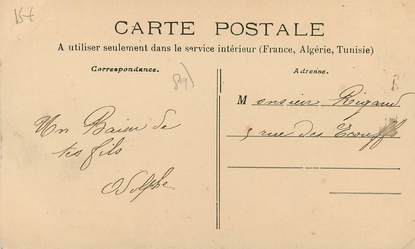 CARTE POSTALE
A utiliser seulement dans le service intérieur (France, Algérie, Tunisie)
Correspondance.
Adresse.
Monsieur Rigaud
rue des Ecouffes
Un Baiser de
tes fils